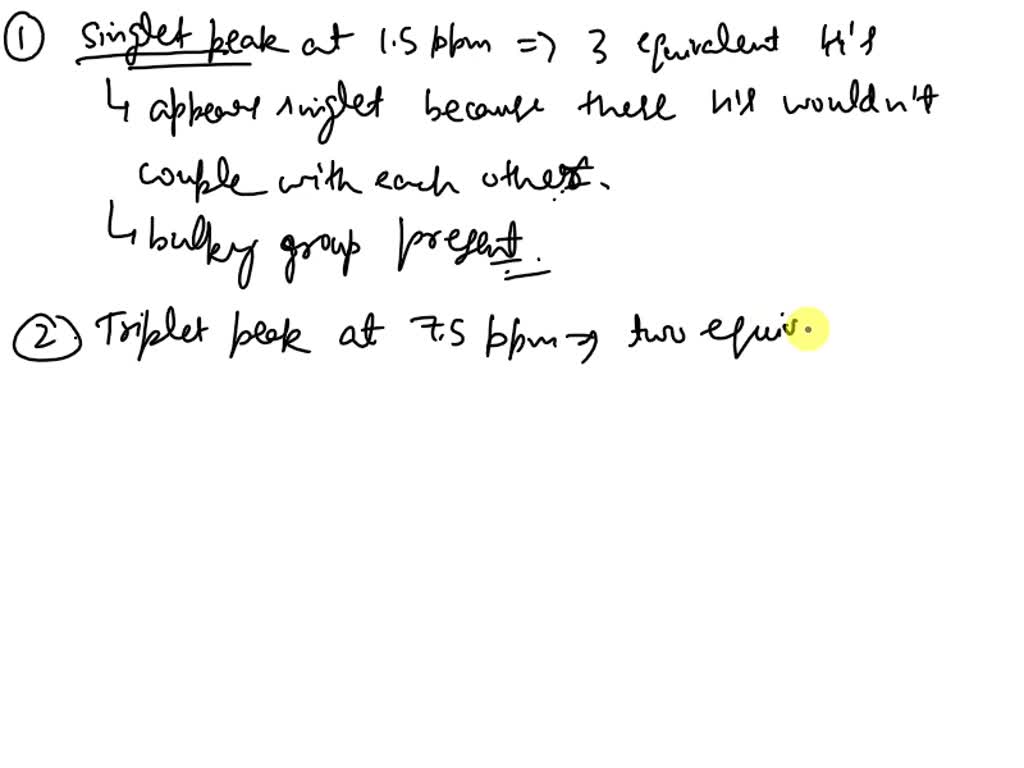 ① singlet peak at 1.5 ppm => 3 equivalent H's
↳ appears singlet because these H's wouldn't
couple with each other.
↳ bulky group present.
② Triplet peak at 7.5 ppm => two equiv.